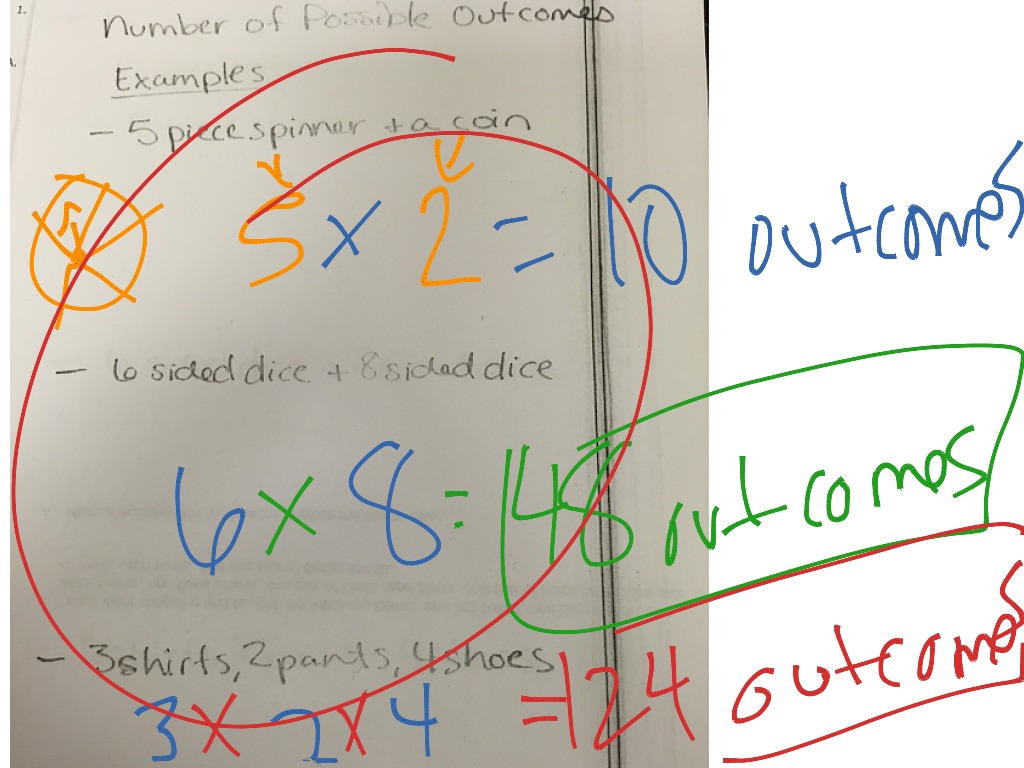 1.
Number of Possible Outcomes
Examples
- 5 piece spinner + a coin
5 x 2 = 10 outcomes
- 6 sided dice + 8 sided dice
6 x 8 = 48 outcomes
- 3 shirts, 2 pants, 4 shoes
3 x 2 x 4 = 124 outcomes